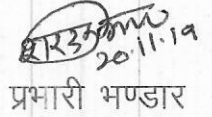 20.11.19
प्रभारी भण्डार